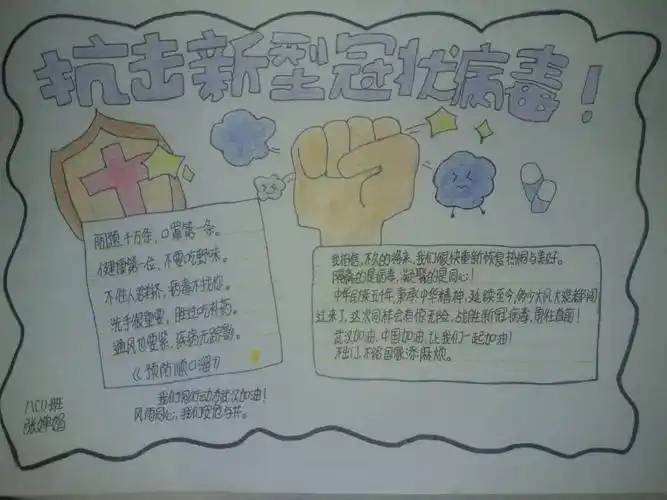 抗击新型冠状病毒！
防范千万条，口罩第一条。
健康第一位，不要吃野味。
不往人群挤，病毒不找你。
洗手很重要，胜过吃补药。
通风也要紧，疾病无踪影。
《预防顺口溜》
我们同行动为武汉加油！
风雨同心，我们安危与共。
八(1)班
我相信，不久的将来，我们很快重新恢复热闹与美好。
隔离的是病毒，凝聚的是同心！
中华上下五千年，秉承中华精神，延续至今，多少大风大浪都闯
过来了，这次同样会有惊无险，战胜新冠病毒，勇往直前！
武汉加油，中国加油，让我们一起加油！
不出门，不给国家添麻烦。